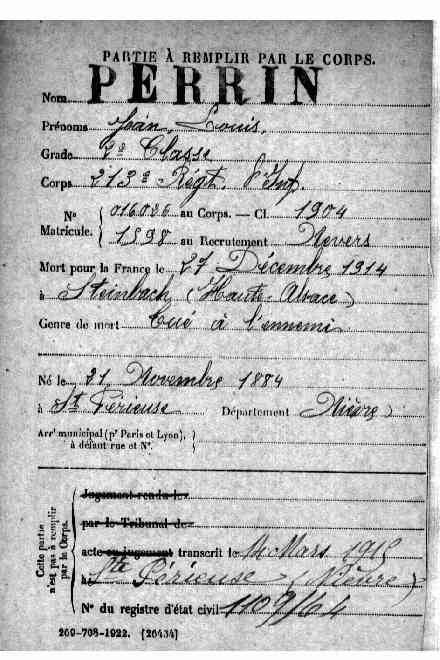 PARTIE À REMPLIR PAR LE CORPS.
Nom PERRIN
Prénoms Jean, Louis,
Grade 2e Classe
Corps 213e Régt. d'Inf.
No Matricule. { 016026 au Corps. — Cl. 1904
1598 au Recrutement Nevers
Mort pour la France le 27 Décembre 1914
à Steinbach (Haute-Alsace)
Genre de mort Tué à l'ennemi
Né le 21 Novembre 1884
à St Périeuse Département Nièvre
Arrt municipal (pr Paris et Lyon), à défaut rue et No.
Cette partie n'est pas à remplir par le Corps.
Jugement rendu le
par le Tribunal de
acte ou jugement transcrit le Mars
à Ste Péreuse (Nièvre)
No du registre d'état civil
269-708-1922. [26434]